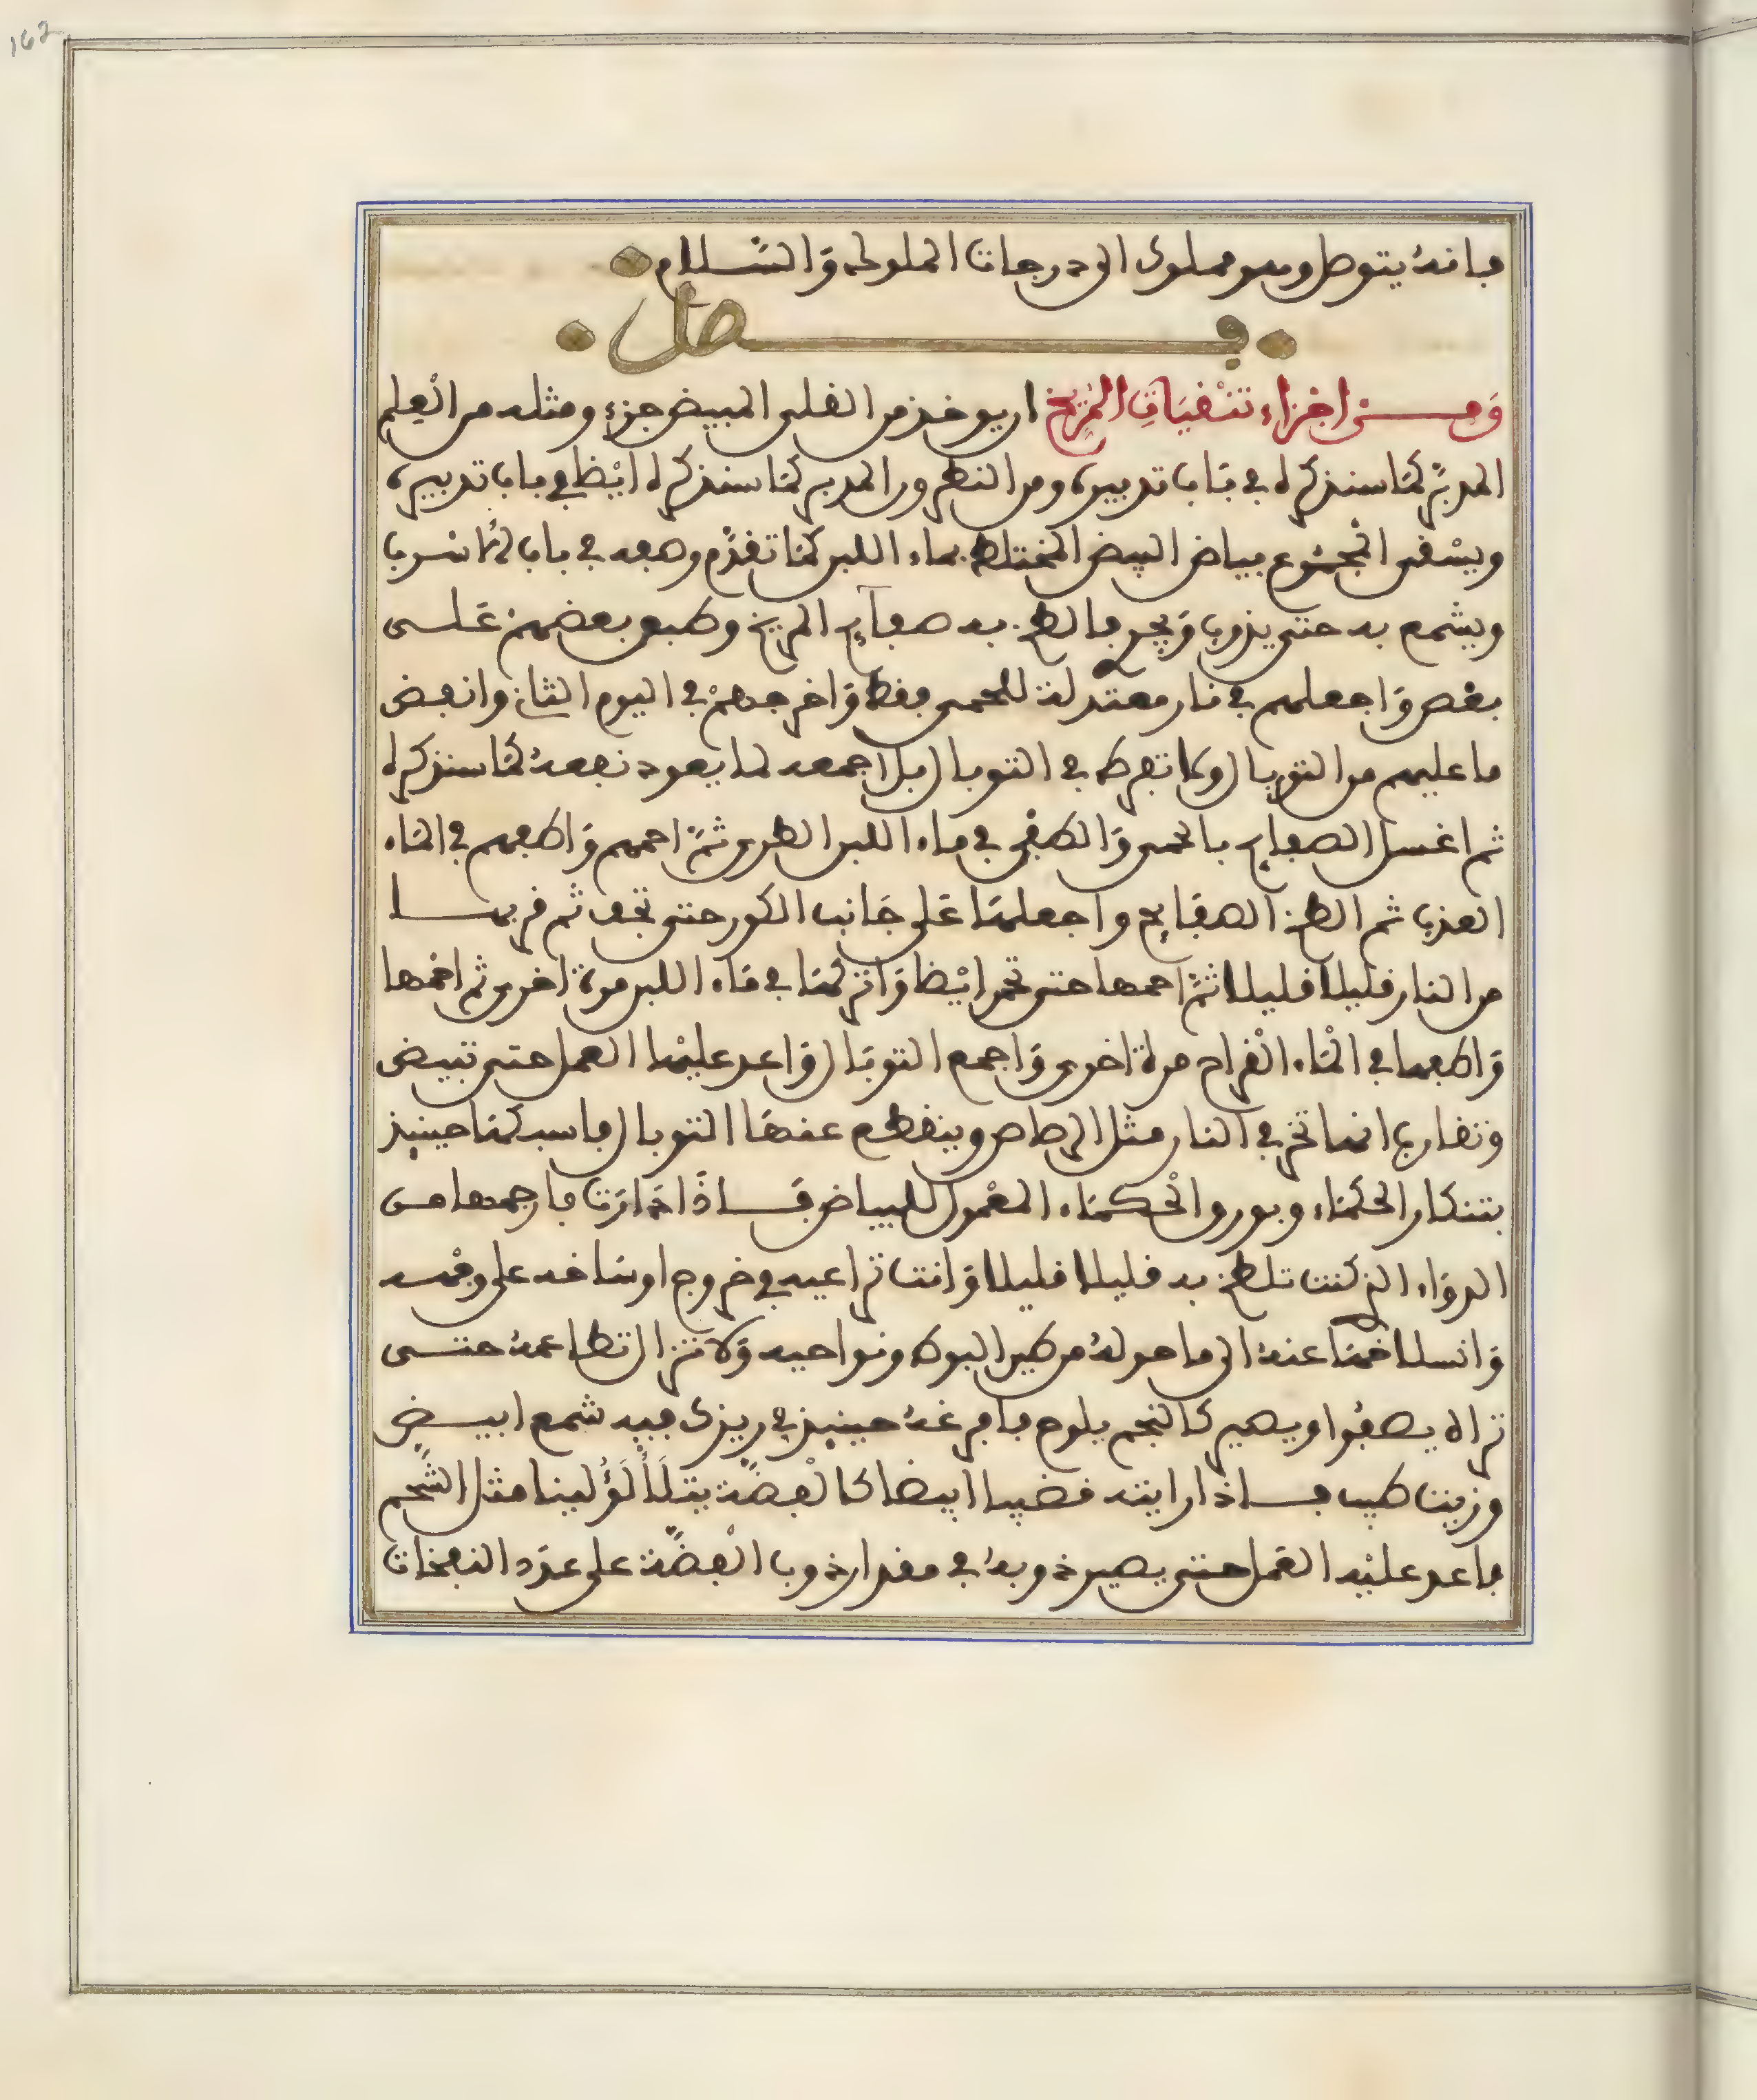 162
فانه يتوصل وهو مملوك الى درجات الملوك والسلام
فصل
ومن اجزاء تنقيات المريخ ان يوخذ من القلى المبيض جزء ومثله من العلم
المدبر كما سنذكره في باب تدبيره ومن النطرون المدبر كما سنذكره ايضا في باب تدبيره
ويسقى المجموع ببياض البيض المختلط بماء اللبن كما تقدم وصفه في باب الاسرب
ويشمع به حتى يذوب ويجري فالطخ به صفايح المريخ وطبق بعضهن على
بعض واجعلهم في نار معتدلة للحمى فقط واخرجهم في اليوم الثاني وانفض
ما عليهم من التوبال ولا تفرط في التوبال بل اجمعه لما يعود نفعه كما سنذكره
ثم اغسل الصفايح بالحمى والطفي في ماء اللبن الطري ثم احمهم واطفهم في الماء
العذب ثم الطخ الصفايح واجعلها على جانب الكور حتى تجف ثم قربها
من النار قليلا قليلا ثم احمها حتى تحمر ايضا واتركها في ماء اللبن مرة اخرى ثم احمها
واطفها في الماء القراح مرة اخرى واجمع التوبال واعد عليها العمل حتى تبيض
وتقارب انها تخر في النار مثل الرصاص وينقطع عنها التوبال فاسبكها حينيذ
بتنكار الحكماء وبورق الحكماء المعمول للبياض فاذا دارت فارجمها من
الدواء الذي كنت تلطخ به قليلا قليلا وانت تراعيه في خروج اوساخه على وجهه
وانسلاخها عنه الى ما حوله من طين البوط ونواحيه ولا تزال تطاعمه حتى
تراه يصفوا ويصير كالنجم يلوح فافرغه حينيذ في ريزك فيه شمع ابيض
وزيت طيب فاذا رايته قضيبا ابيضا كالفضة يتلألؤ لينا مثل الشحم
فاعد عليه العمل حتى يصير ذوبه في مقدار ذوب الفضة على عدد النفخات